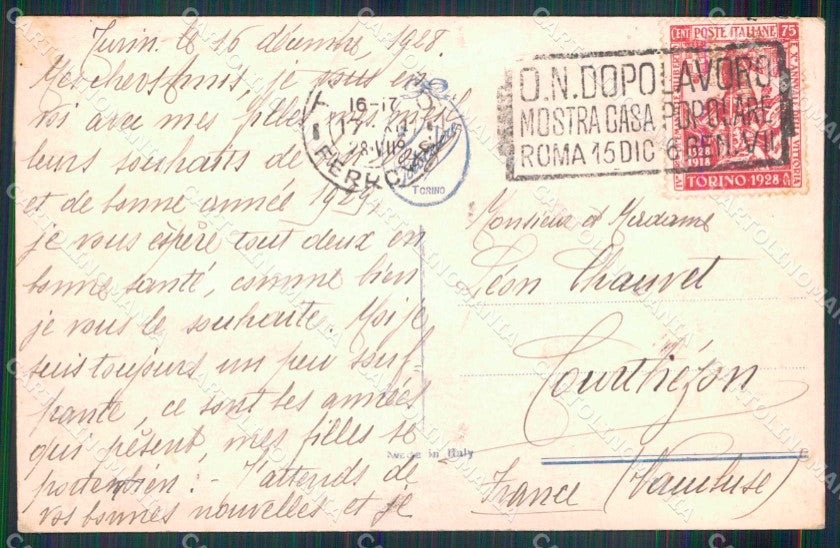 Turin le 16 décembre, 1928.
Mes chers amis, je vous en
voi avec mes filles mes meil
leurs souhaits de
et de bonne année 1929,
je vous espère tout deux en
bonne santé, comme bien
je vous le souhaite. Moi je
suis toujours un peu souf
frante, ce sont les années
qui pèsent, mes filles se
portent bien : - J'attends de
vos bonnes nouvelles et je
16-17
17 XII
28 VII
FERRO
TORINO
O.N. DOPOLAVORO
MOSTRA CASA POPOLARE
ROMA 15 DIC 6 GEN. VII
CENT POSTE ITALIANE 75
1528
1918
VITTORIA
TORINO · 1928
Monsieur et Madame
Léon Chauvet
Courthézon
France (Vaucluse)
Made in Italy
CARTOLINOMANIA